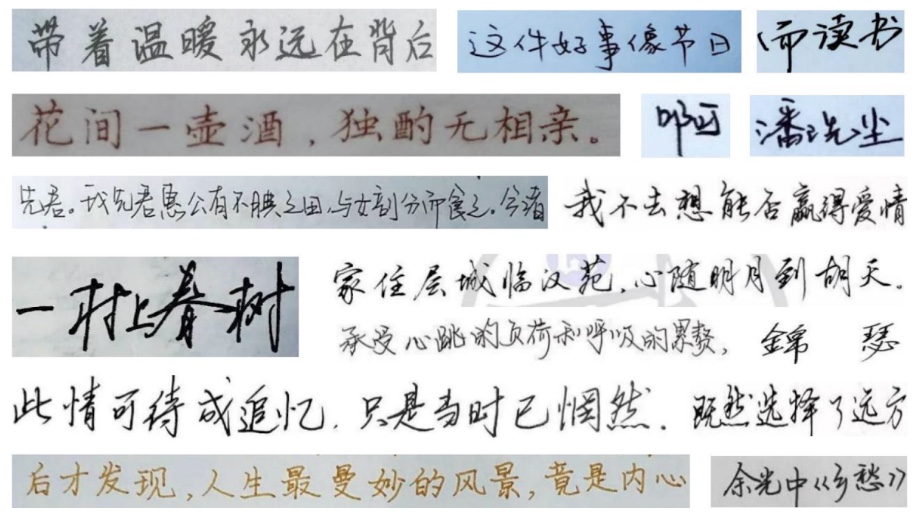 带着温暖永远在背后
这件好事像节日
而读书
花间一壶酒，独酌无相亲。
啊
潘洗尘
先君。我先君惠公有不腆之田，与女剖分而食之。今诸
我不去想能否赢得爱情
一村上春树
家住层城临汉苑，心随明月到胡天。
承受心跳的负荷和呼吸的累赘，
锦 瑟
此情可待成追忆，只是当时已惘然．
既然选择了远方
后才发现，人生最曼妙的风景，竟是内心
余光中《乡愁》